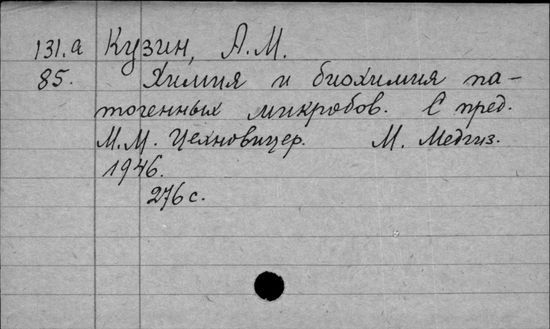 131.a Кузин, А.М.
85. Химия и биохимия па-
тогенных микробов. С пред.
М.М. Цехновицер. М. Медгиз.
1946.
276 с.